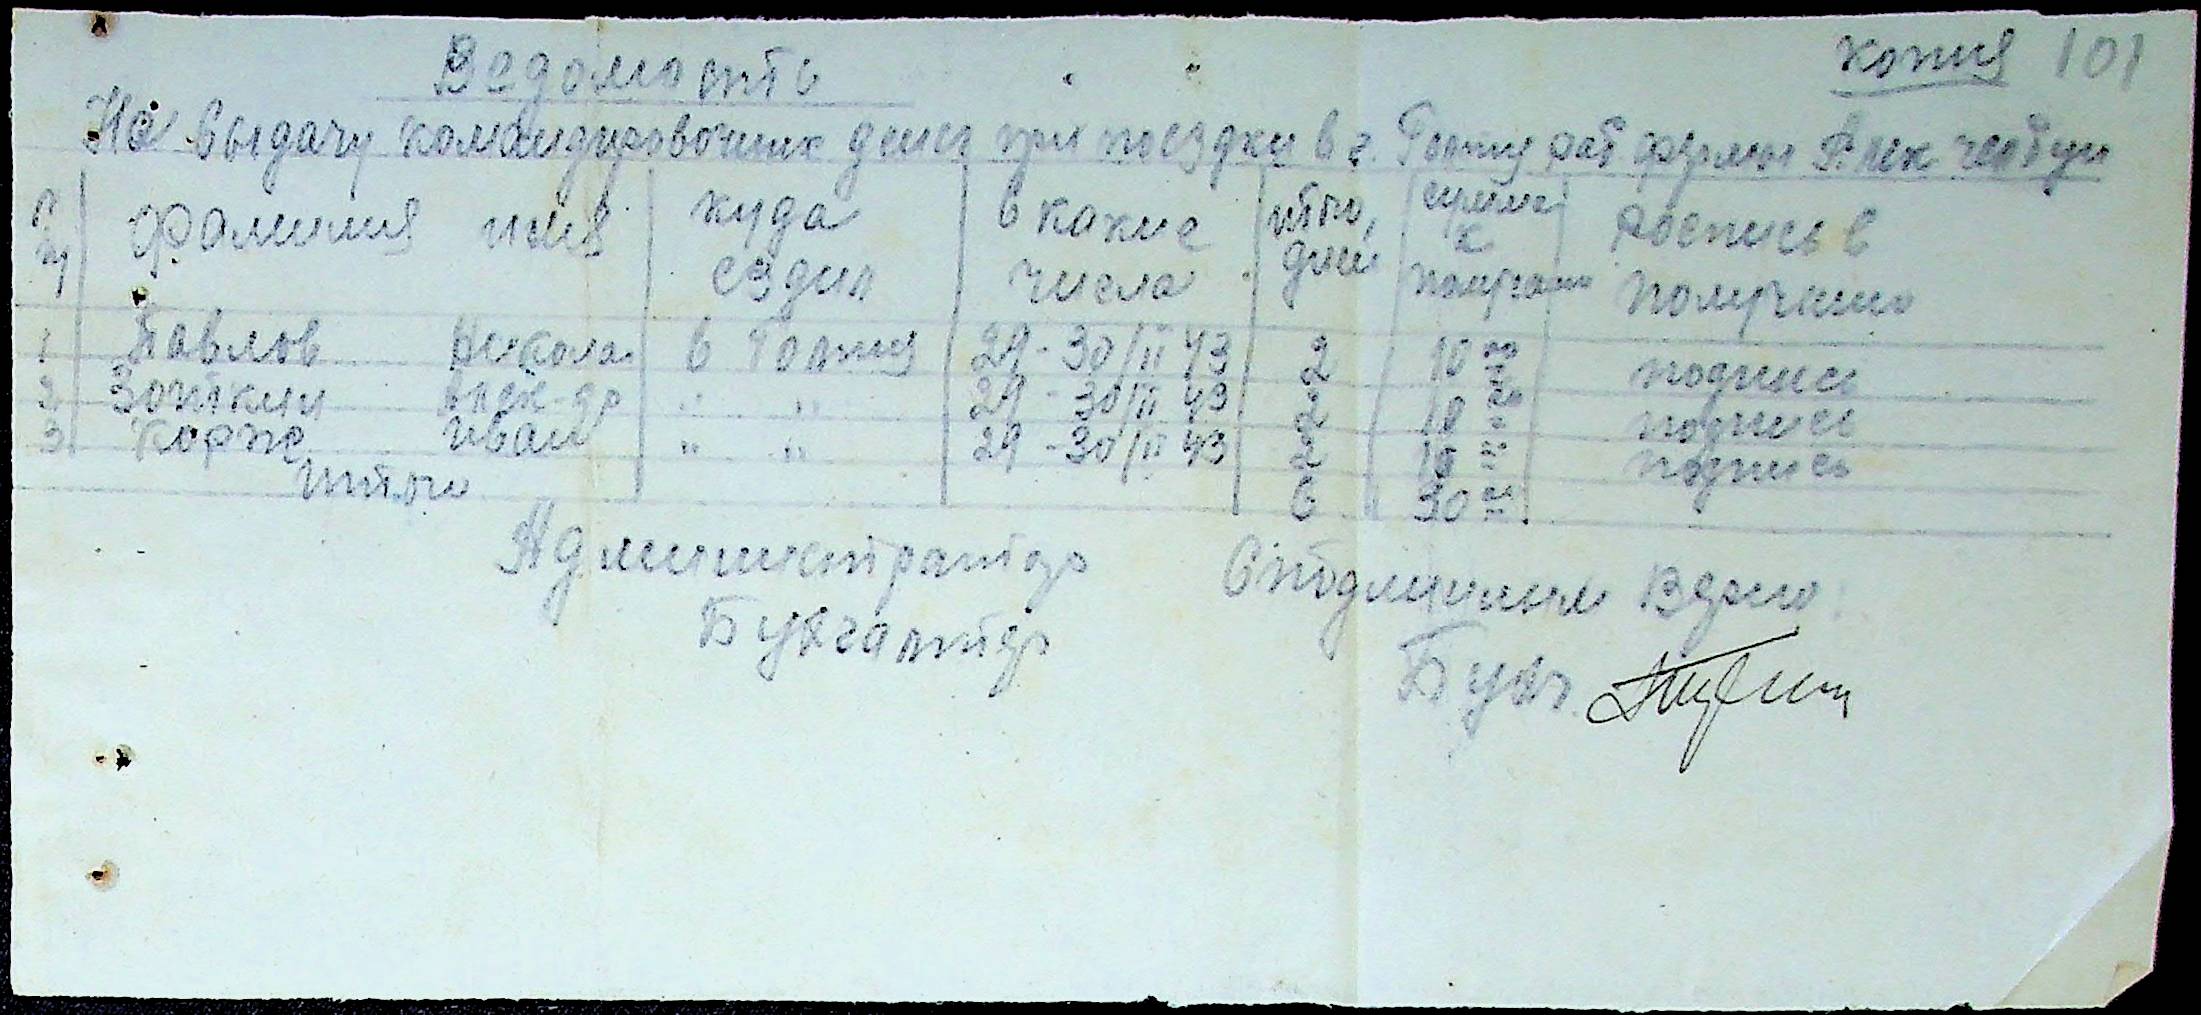 копия 101
Ведомость
На выдачу командировочных денег при поездки в г. раб фермы
п/п Фамилия имя куда ездил в какие числа итого дней сумма к получению роспись в получении
1 Павлов Никола в 29-30/II 43 2 10 00 подпись
2 Алек-др " " 29-30/II 43 2 10 00 подпись
3 Корж Иван " " 29-30/II 43 2 10 00 подпись
Итого 6 30 00
Администратор С подлинным Верно:
Бухгалтер Бухг.